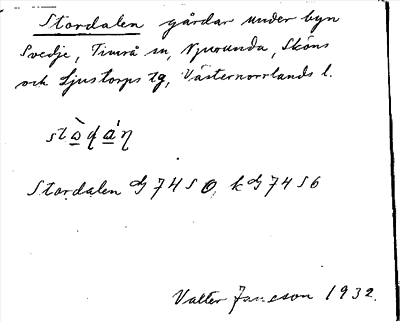 Stordalen gårdar under byn
Svedje, Timrå sn, Njurunda, Sköns
och Ljustorps tg, Västernorrlands l.
Stordalen dJ 74 S O, k dJ 74 S 6
Valter Janeson 1932.